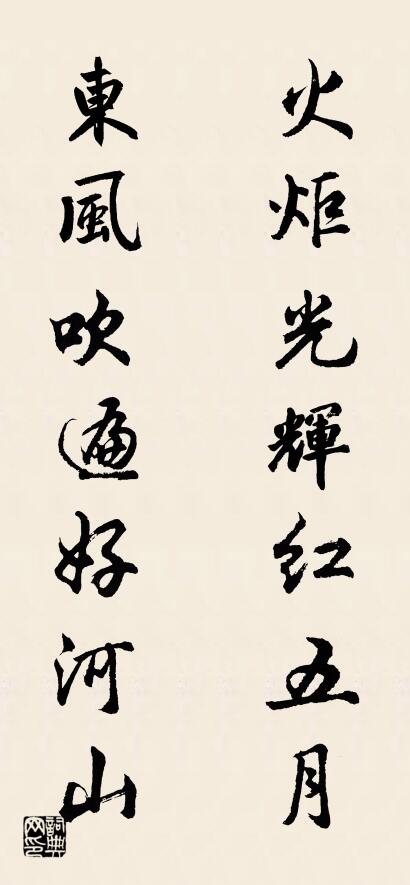 火炬光輝红五月
東風吹遍好河山
詞典网印